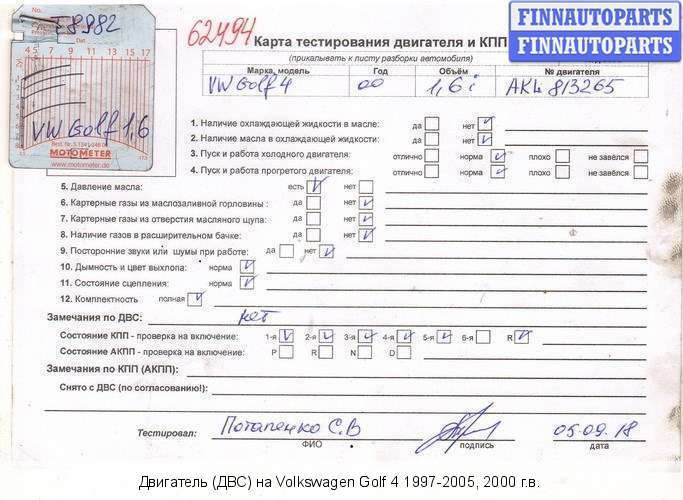 No.
T8982
Dat.
4 5 7 9 11 13 15 17
VW Golf 1,6
MOTOMETER
www.motometer.de
62494
Карта тестирования двигателя и КПП
(прикалывать к листу разборки автомобиля)
FINNAUTOPARTS
FINNAUTOPARTS
Марка, модель Год Объём № двигателя
VW Golf 4 00 1,6 i AKL 813265
1. Наличие охлаждающей жидкости в масле: да нет V
2. Наличие масла в охлаждающей жидкости: да нет V
3. Пуск и работа холодного двигателя: отлично норма V плохо не завёлся
4. Пуск и работа прогретого двигателя: отлично норма V плохо не завёлся
5. Давление масла: есть V нет
6. Картерные газы из маслозаливной горловины : да нет V
7. Картерные газы из отверстия масляного щупа: да нет V
8. Наличие газов в расширительном бачке: да нет V
9. Посторонние звуки или шумы при работе: да нет V
10. Дымность и цвет выхлопа: норма V
11. Состояние сцепления: норма V
12. Комплектность полная V
Замечания по ДВС: нет
Состояние КПП - проверка на включение: 1-я V 2-я V 3-я V 4-я V 5-я V 6-я R V
Состояние АКПП - проверка на включение: P R N D
Замечания по КПП (АКПП):
Снято с ДВС (по согласованию!):
Тестировал: Потапенко С.В 05.09.18
ФИО подпись дата
Двигатель (ДВС) на Volkswagen Golf 4 1997-2005, 2000 г.в.